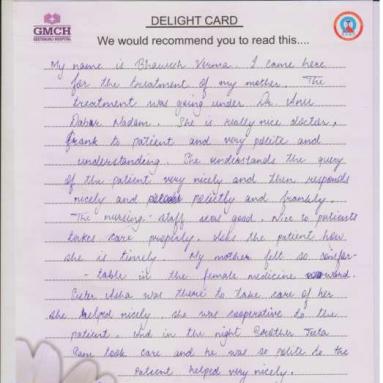 GMCH
GEETANJALI HOSPITAL
DELIGHT CARD
We would recommend you to read this....
My name is Bhavesh Verma. I came here
for the treatment of my mother. The
treatment was going under Dr.
Dabar Madam. She is really nice doctor,
frank to patient and very polite and
understanding. She understands the query
of the patient very nicely and then responds
nicely and politely and frankly.
- The nursing staff was good. Nice to patients
takes care properly. Asks the patient how
she is timely. My mother felt so comfor-
- table in the female medicine ward.
Sister Asha was there to take care of her
she helped nicely. she was cooperative to the
patient. And in the night Brother Jeeta
Ram took care and he was so polite to the
patient helped very nicely.